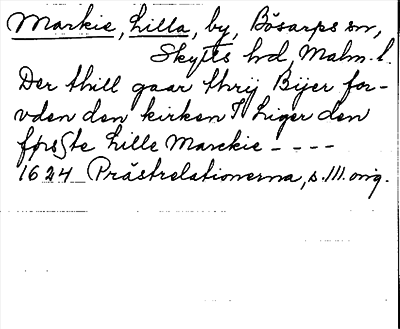 Markie, Lilla, by, Bösarps sn,
Skytts hd, Malm. l.
Der thill gaar thrij Bijer for-
vden den kirken I Liger den
første Lille Marckie - - - -
1624 Prästrelationerna, s. 111. orig.